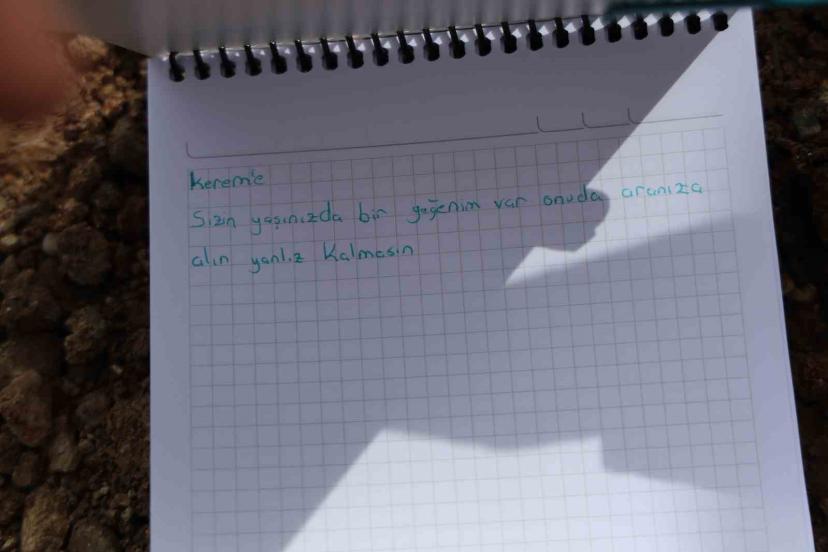 Kerem'e
Sizin yaşınızda bir yeğenim var onuda aranıza
alın yanlız kalmasın